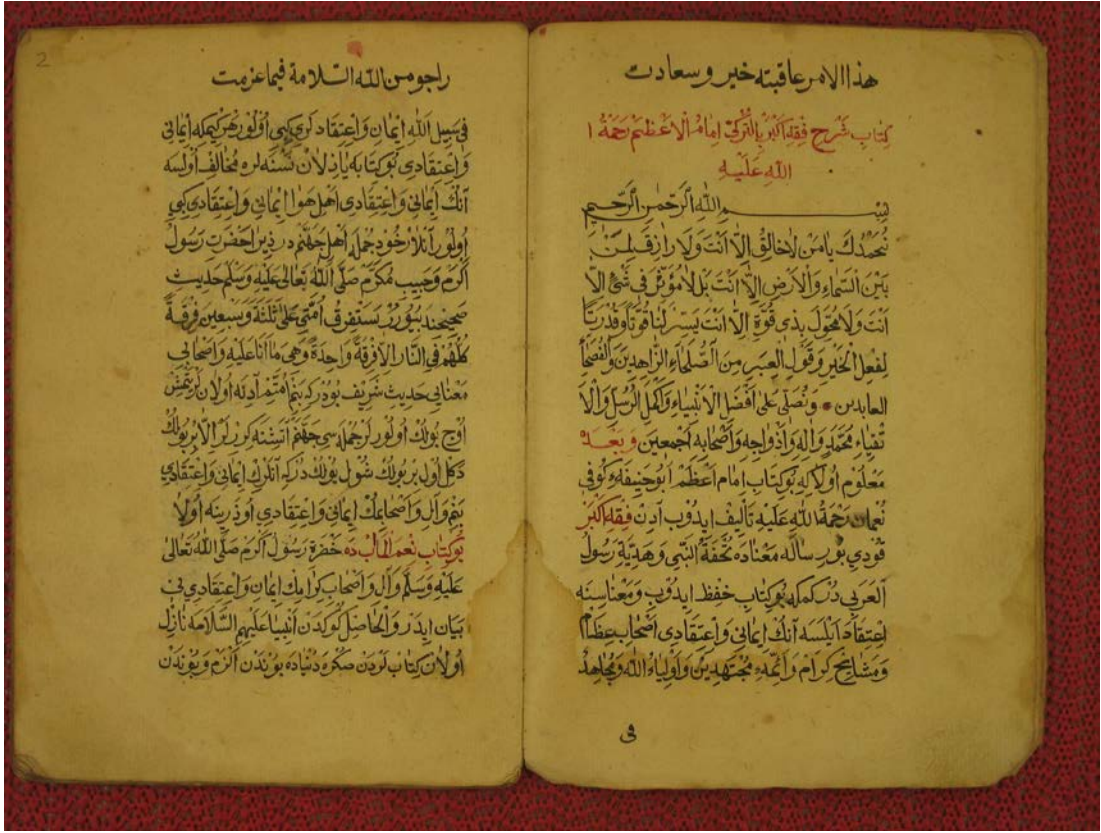 هذا الامر عاقبته خير وسعادت
كتاب شرح فقه اكبر بالتركي امام الاعظم رحمة ا
الله عليه
بسم الله الرحمن الرحيم
نحمدك يا من لا خالق الا انت ولا رازق لمن
بين السماء والارض الا انت بل لا مؤثر في شئ الا
انت ولا محول بذى قوة الا انت يسر لنا قوتا وقدرتا
لفعل الخير وقول العبر من الصلحاء الزاهدين والفصحا
العابدين ونصلى على افضل الانبياء واكمل الرسل والا
تقياء محمد واله وازواجه واصحابه اجمعين وبعد
معلوم اولا كه بو كتاب امام اعظم ابو حنيفهء كوفى
نعمان رحمة الله عليه تأليف ايدوب آدن فقه اكبر
قودي بو رساله معناده تحفة النبي وهدية رسول
العربى در كمكه بو كتاب حفظ ايدوب ومعناسينه
اعتقاد ايلسه آنك ايمانى واعتقادى اصحاب عظام
ومشايخ كرام وائمهء مجتهدين واولياء الله ومجاهد
فى
2
راجو من الله السلامة فيما عزمت
فى سبيل الله ايمان واعتقادلرى كبى اولور هر كيمكه ايمانى
واعتقادى بو كتابه يازلان نسنه لره مخالف اولسه
آنك ايمانى واعتقادى اهل هوا ايمانى واعتقادى كبى
اولور آنلار خود جمله اهل جهنم در زيرا حضرت رسول
اكرم وحبيب مكرم صلى الله تعالى عليه وسلم حديث
صحيحنده بيورر ستفرق امتى على ثلثة وسبعين فرقة
كلهم في النار الا فرقة واحدة وهى ما انا عليه واصحابى
معناى حديث شريف بودر كه بنم امتم آدنه اولان يتمش
اوچ بولك اولورلر جمله سى جهنم آتشنه كررلر الا بر بولك
دكل اول بر بولك شول بولك در كه آنلرك ايمانى واعتقادى
بنم وآل واصحابمك ايمانى واعتقادى اوزرينه اولا
بو كتاب نعم المآب ده حضرة رسول اكرم صلى الله تعالى
عليه وسلم وآل واصحاب كرامك ايمان واعتقادى نى
بيان ايدر والحاصل كوكدن انبيا عليهم السلامه نازل
اولان كتابلردن صكره دنياده بوندن الزم وبوندن